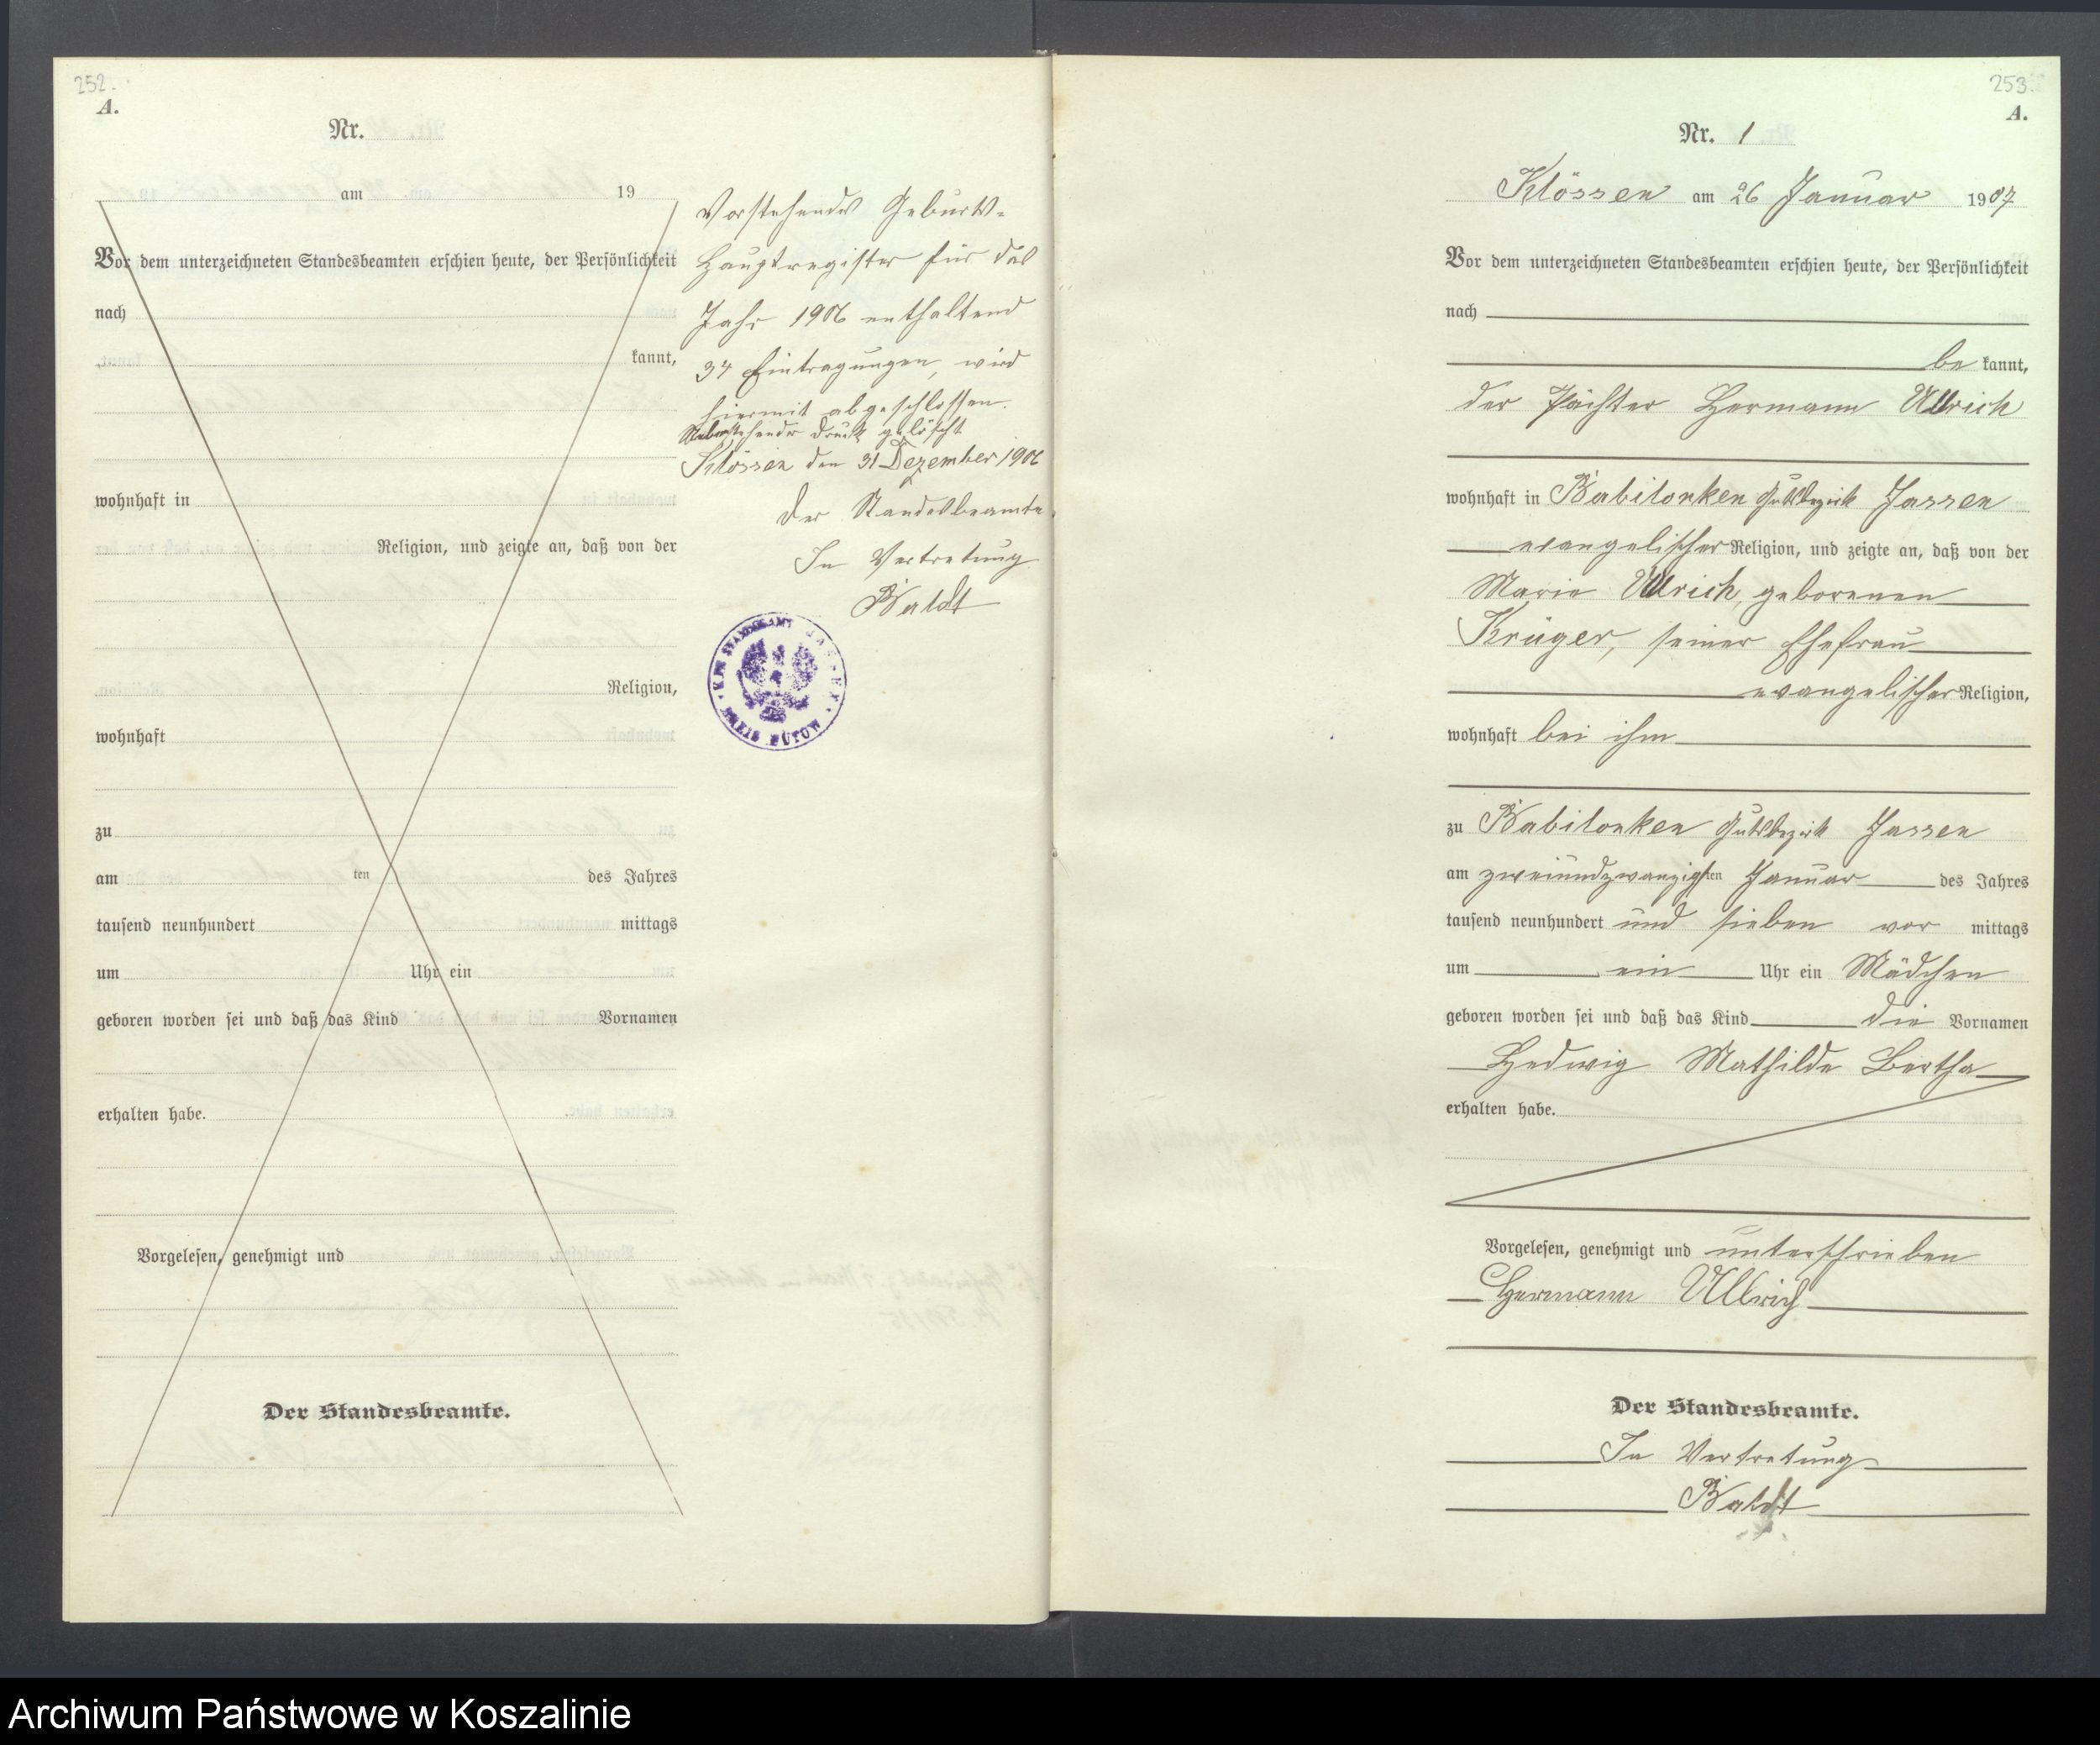 252.
A.
Nr.
am 19
Vor dem unterzeichneten Standesbeamten erschien heute, der Persönlichkeit
nach
kannt,
wohnhaft in
Religion, und zeigte an, daß von der
Religion,
wohnhaft
zu
am ten des Jahres
tausend neunhundert mittags
um Uhr ein
geboren worden sei und daß das Kind Vornamen
erhalten habe.
Vorgelesen, genehmigt und
Der Standesbeamte.
Vorstehendes Geburts-
Hauptregister für das
Jahr 1906 enthaltend
34 Eintragungen, wird
hiermit abgeschlossen.
Nebenstehender Druck gelöscht
Klössen den 31 Dezember 1906
Der Standesbeamte
In Vertretung
Baldt
K.PR. STANDESAMT JASSEN
KREIS BÜTOW
253.
A.
Nr. 1
Klössen am 26 Januar 1907
Vor dem unterzeichneten Standesbeamten erschien heute, der Persönlichkeit
nach
be kannt,
der Pächter Hermann Ullrich
wohnhaft in Babilonken Gutsbezirk Jassen
evangelischer Religion, und zeigte an, daß von der
Marie Ullrich, geborenen
Krüger, seiner Ehefrau
evangelischer Religion,
wohnhaft bei ihm
zu Babilonken Gutsbezirk Jassen
am zweiundzwanzigsten Januar des Jahres
tausend neunhundert und sieben vor mittags
um ein Uhr ein Mädchen
geboren worden sei und daß das Kind die Vornamen
Hedwig Mathilde Bertha
erhalten habe.
Vorgelesen, genehmigt und unterschrieben
Hermann Ullrich
Der Standesbeamte.
In Vertretung
Baldt
Archiwum Państwowe w Koszalinie